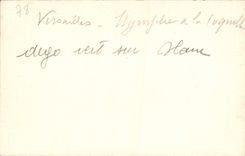 78
Versailles - Nymphe à la Coquille
dejo vert sur Hans